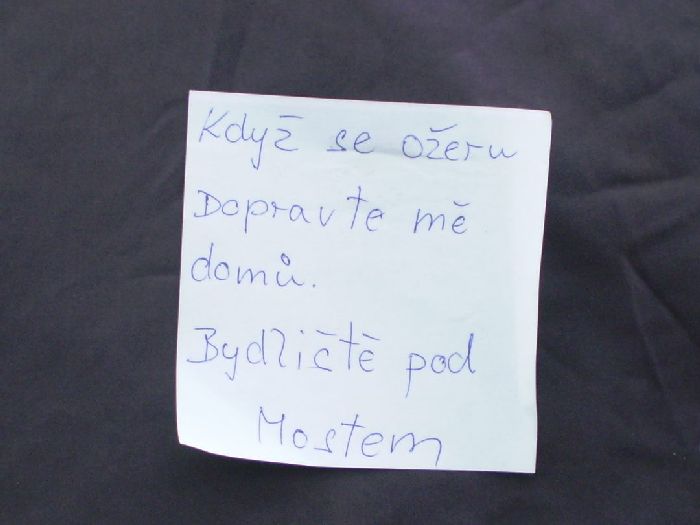 Když se ožeru
Dopravte mě
domů.
Bydliště pod
Mostem